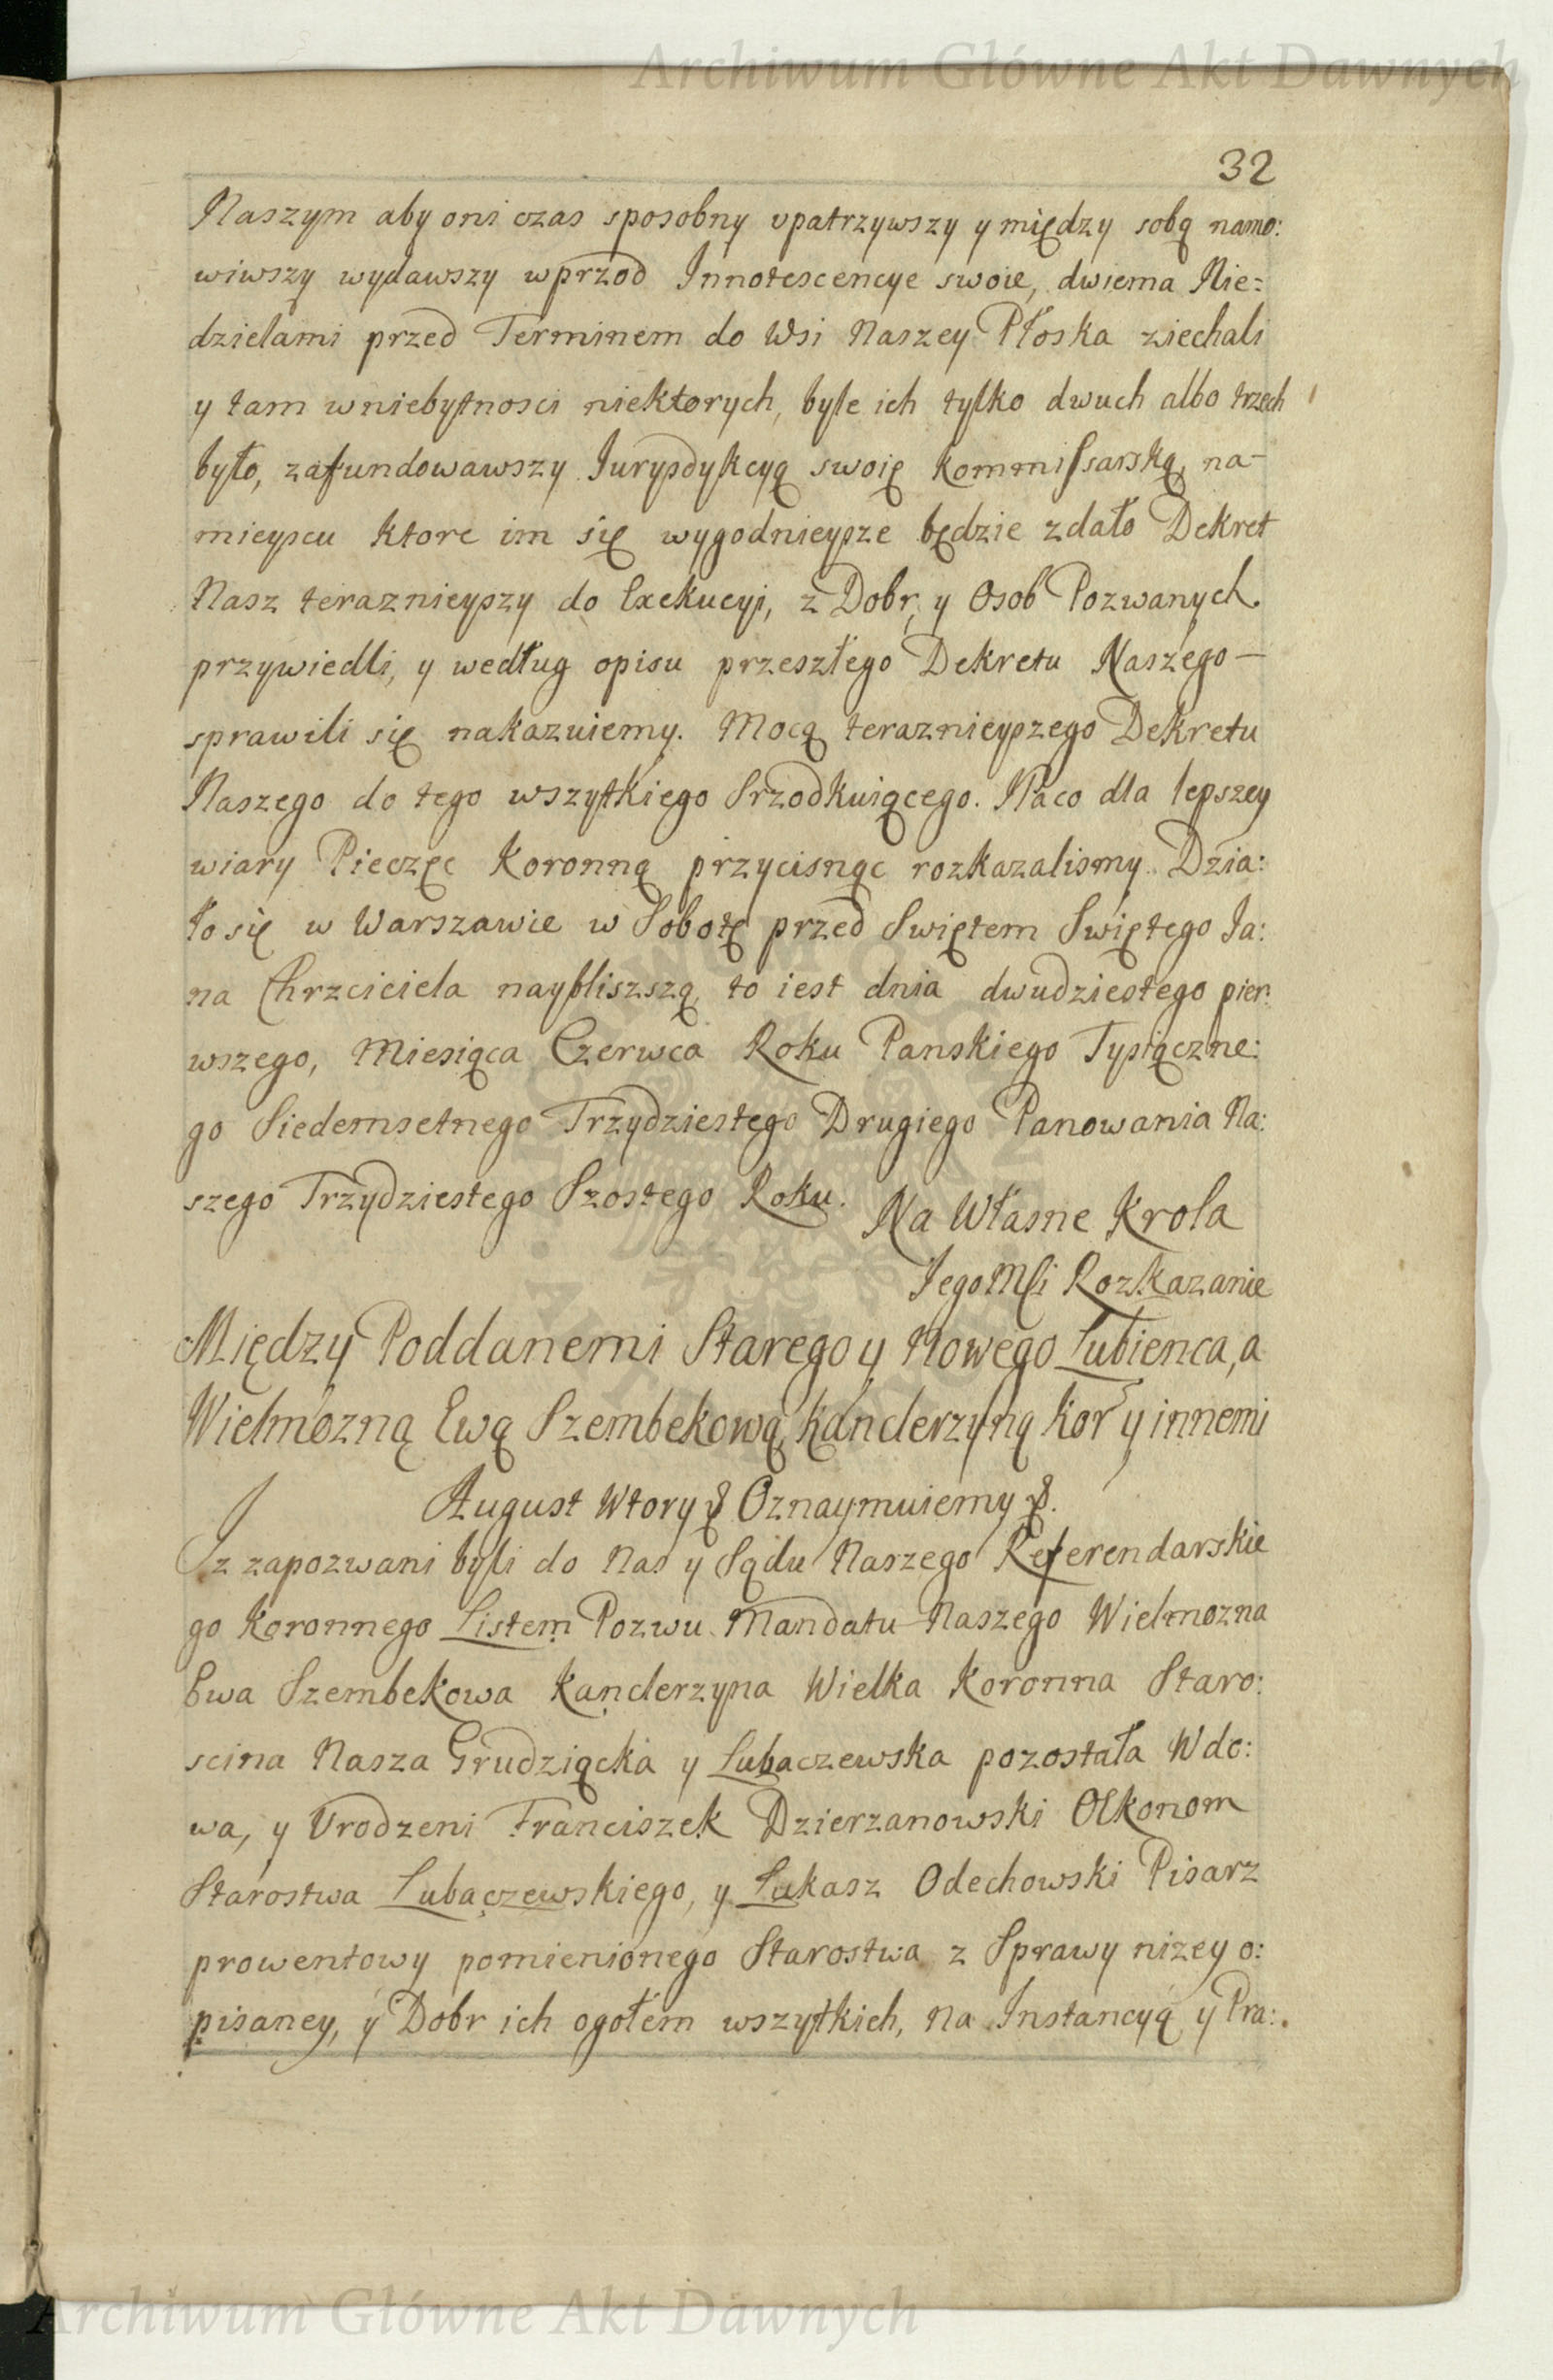 Archiwum Główne Akt Dawnych
32
Naszym aby oni czas sposobny upatrzywszy y między sobą namo:
wiwszy wydawszy wprzod Innotescencye swoie, dwiema Nie=
dzielami przed Terminem do Wsi Naszey Płoska ziechali
y tam w niebytnosci niektorych, byle ich tylko dwuch albo trzech
było, zafundowawszy Jurysdykcyą swoię Kommissarską, na-
mieyscu ktore im się wygodnieysze będzie zdało Dekret
Nasz teraznieyszy do Exekucyi, z Dobr, y Osob Pozwanych.
przywiedli, y według opisu przeszłego Dekretu Naszego—
sprawili się nakazuiemy. Mocą teraznieyszego Dekretu
Naszego do tego wszytkiego Srzodkuiącego. Na co dla lepszey
wiary Pieczęc Koronną przycisnąc rozkazalismy. Dzia:
ło się w Warszawie w Sobotę przed Swiętem Swiętego Ja:
na Chrzciciela naybliszszą, to iest dnia dwudziestego pier:
wszego, Miesiąca Czerwca Roku Panskiego Tysiączne:
go Siedemsetnego Trzydziestego Drugiego Panowania Na:
szego Trzydziestego Szostego Roku. Na Własne Krola
Jego Mśi Rozkazanie
Między Poddanemi Starego y Nowego Lubienca, a
Wielmozną Ewą Szembekową, Kanclerzyną Kor y innemi
August Wtory &. Oznaymuiemy &.
Iz zapozwani byli do Nas y Sądu Naszego Referendarskie
go Koronnego Listem Pozwu Mandatu Naszego Wielmozna
Ewa Szembekowa Kanclerzyna Wielka Koronna Staro:
scina Nasza Grudziącka y Lubaczewska pozostała Wdo:
wa, y Urodzeni Franciszek Dzierzanowski OEkonom
Starostwa Lubaczewskiego, y Łukasz Odechowski Pisarz
prowentowy pomienionego Starostwa z Sprawy nizey o:
pisaney, y Dobr ich ogołem wszytkich, na Instancyą y Pra:
Archiwum Główne Akt Dawnych